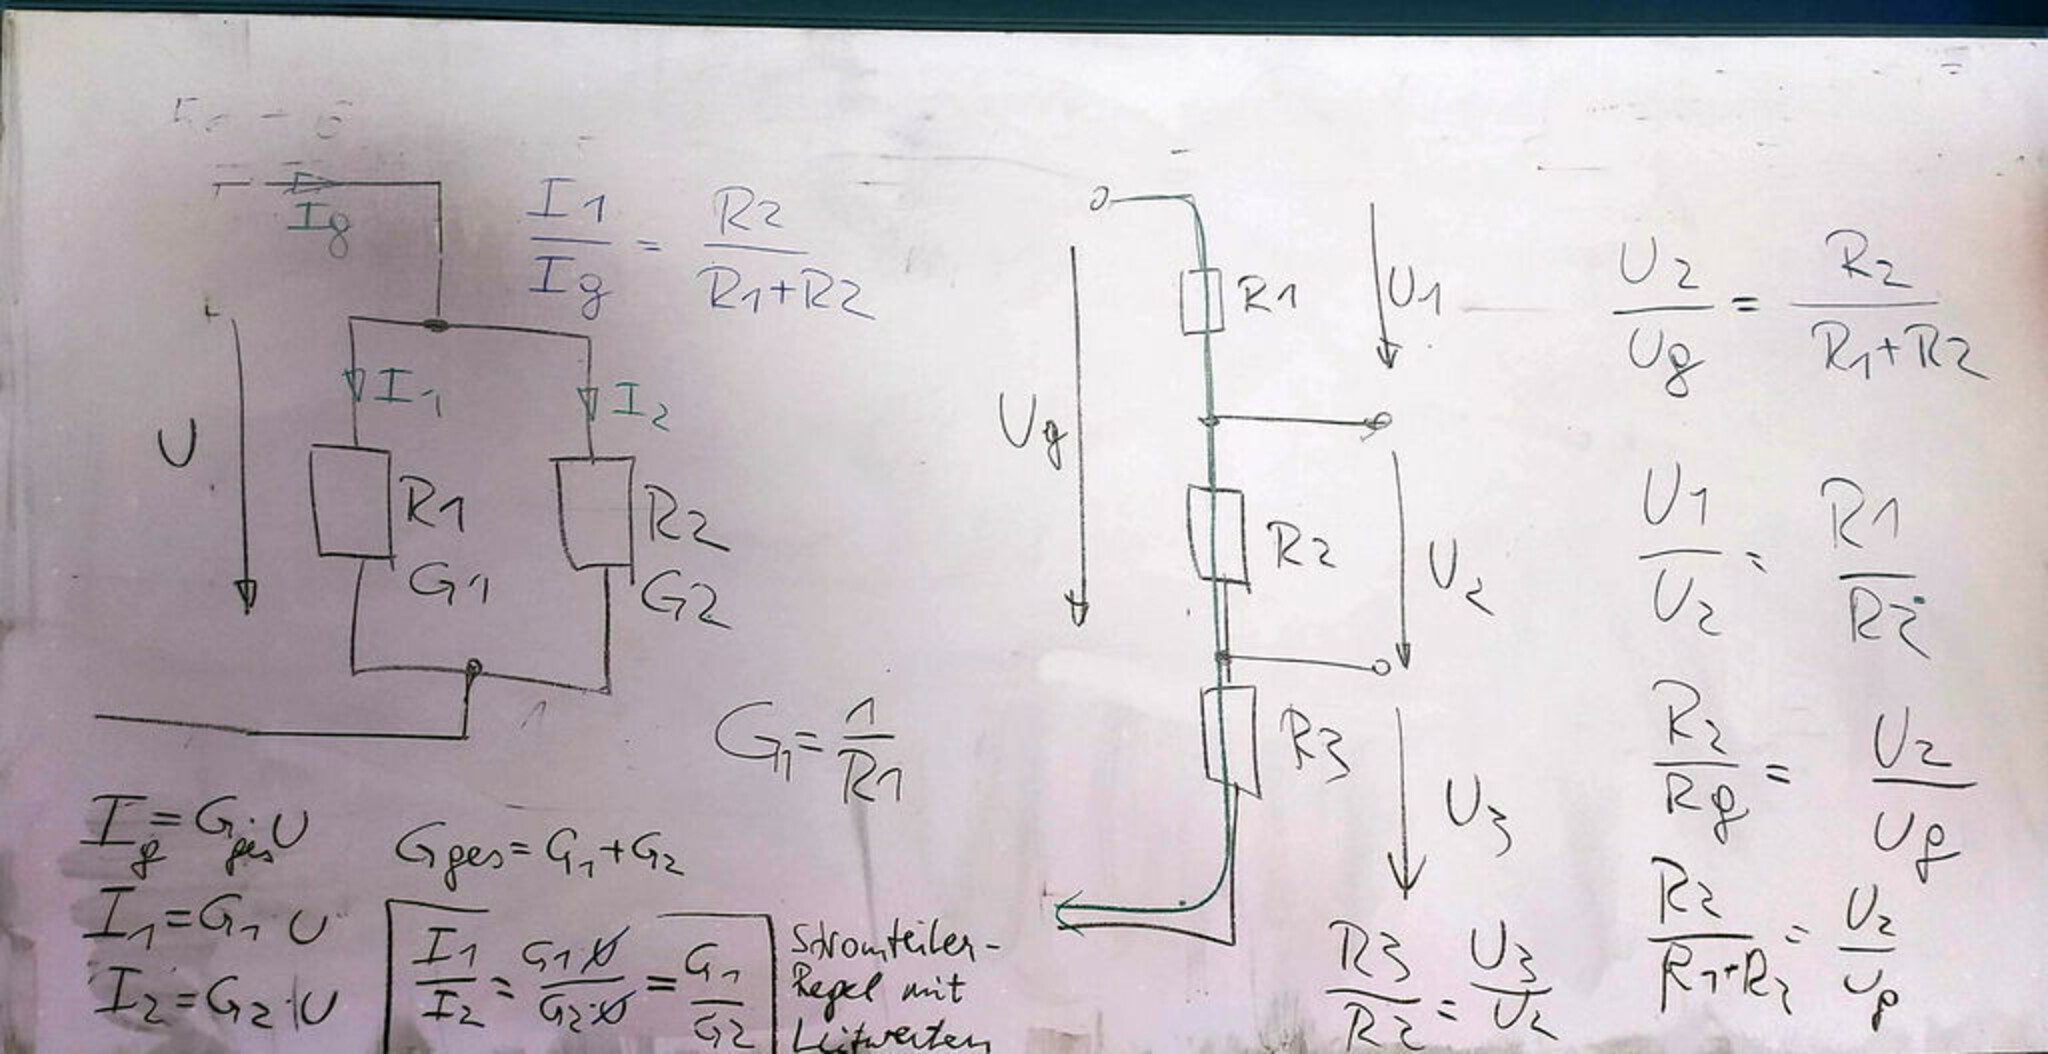 Ig
I1/Ig = R2/(R1+R2)
U
I1
I2
R1
G1
R2
G2
G1 = 1/R1
Ig = Gges · U
Gges = G1 + G2
I1 = G1 U
I2 = G2 · U
I1/I2 = G1·U/G2·U = G1/G2
Stromteiler-
Regel mit
Leitwerten
Ug
R1
U1
R2
U2
R3
U3
R3/R2 = U3/U2
U2/Ug = R2/(R1+R2)
U1/U2 = R1/R2
R2/Rg = U2/Ug
R2/(R1+R2) = U2/Ug